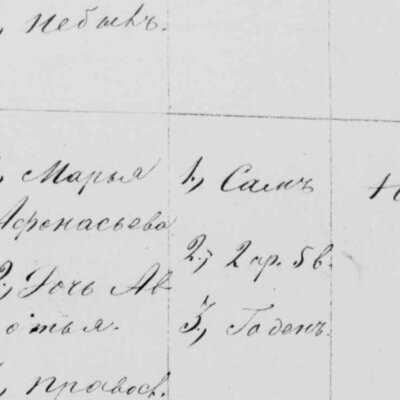 , небылъ.
, Марья
Афонасьева
2., Дочь Ав
отья.
, правосв.
1., Самъ
2., 2 ар. 5 в.
3., Годенъ.